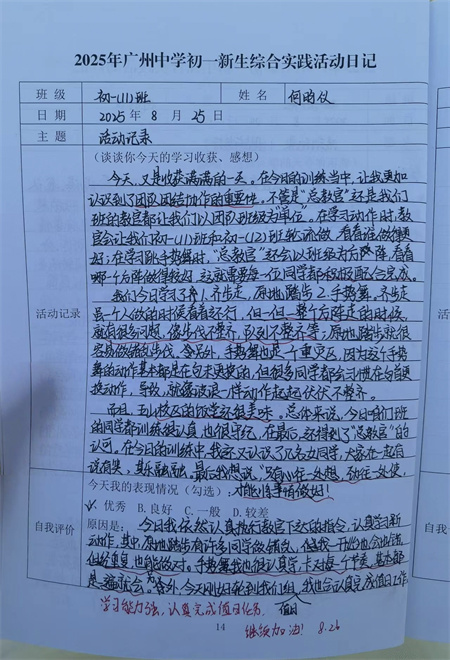 2025年广州中学初一新生综合实践活动日记
班 级 初一(11)班 姓 名 何昀
日 期 2025 年 8 月 25 日
主 题 活动记录
(谈谈你今天的学习收获、感想)
今天,又是收获满满的一天。在今日的训练当中,让我更加
认识到了团队团结协作的重要性。不管是“总教官”还是我们
班的教官都让我们以团队班级为“单位”。在学习动作时,教
官会让我们初一(11)班和初一(12)班轮流做,看看谁做得更
好;在学习跳手势舞时,“总教官”还会以班级为方阵,看看
哪个方阵做得较好,这就需要每一位同学都积极配合完成。
我们今日学习了1.齐步走,原地踏步2.手势舞。齐步走
虽一个人做的时候看着还行,但一但整个方阵走的时候,
就有很多问题,像步伐不整齐,队列不整齐等;原地踏步就很
容易做错乱步伐。令另外,手势舞也是一个重灾区,因为这个手势
舞的动作基本都是在句末更换的,但很多同学都会习惯在句首更
换动作,导致,就像波浪一样动作起起伏伏不整齐。
而且,五山校区的饭堂还很美味。总体来说,今日咱们班
的同学都训练很认真,也很守纪,在最后,还得到了“总教官”的
认可。在今日的训练中,我不又认识了几名女同学,大家在一起有
说有笑,其乐融融。最后我想说:“只有心往一处想,劲往一处使,
才能将事情做好!
活动记录
今天我的表现情况(勾选):
A. 优秀 B.良好 C.一般 D.较差
自我评价
原因是: 今日我依然认真执行教官下达的指令,认真学习新
动作,其中,原地踏步有许多同学做错乱,但我一开始也会出错
但经重复,也能做对。手势舞我也很认真学,卡对每个节奏,基本都
是一遍就会。另外,今天刚好轮到我们组,我也会认真完成值日工作。
值日
学习能力强,认真完成值日任务,
继续加油! 8.26
14